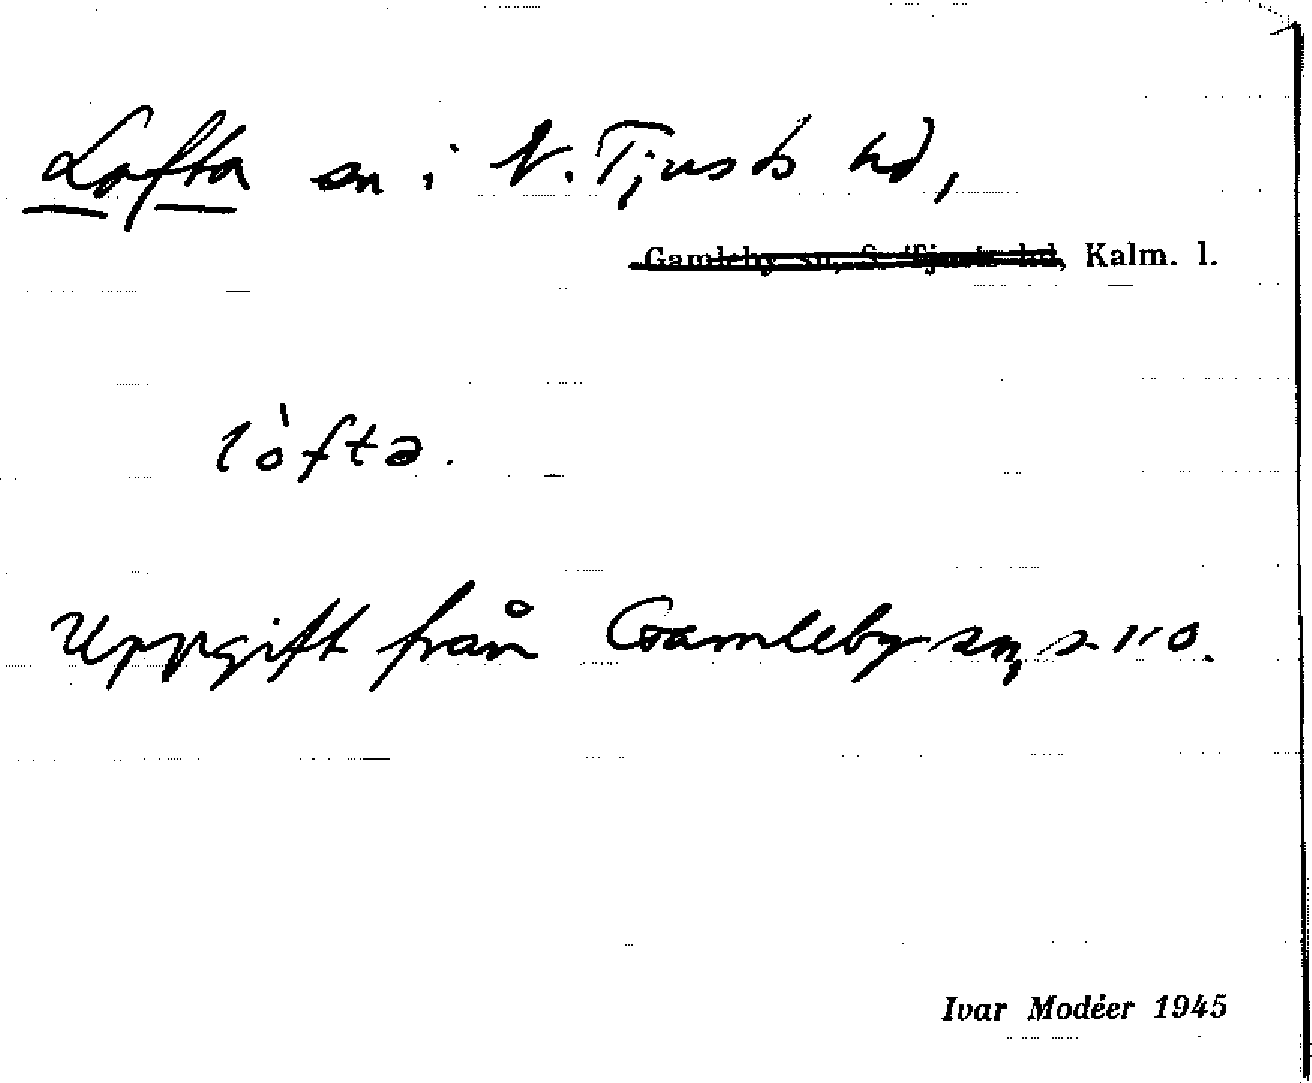 Lofta sn i N. Tjusts hd,
Gamleby sn, S. Tjusts hd, Kalm. l.
lòftə.
Uppgift från Gamleby sn, s.
Ivar Modéer 1945